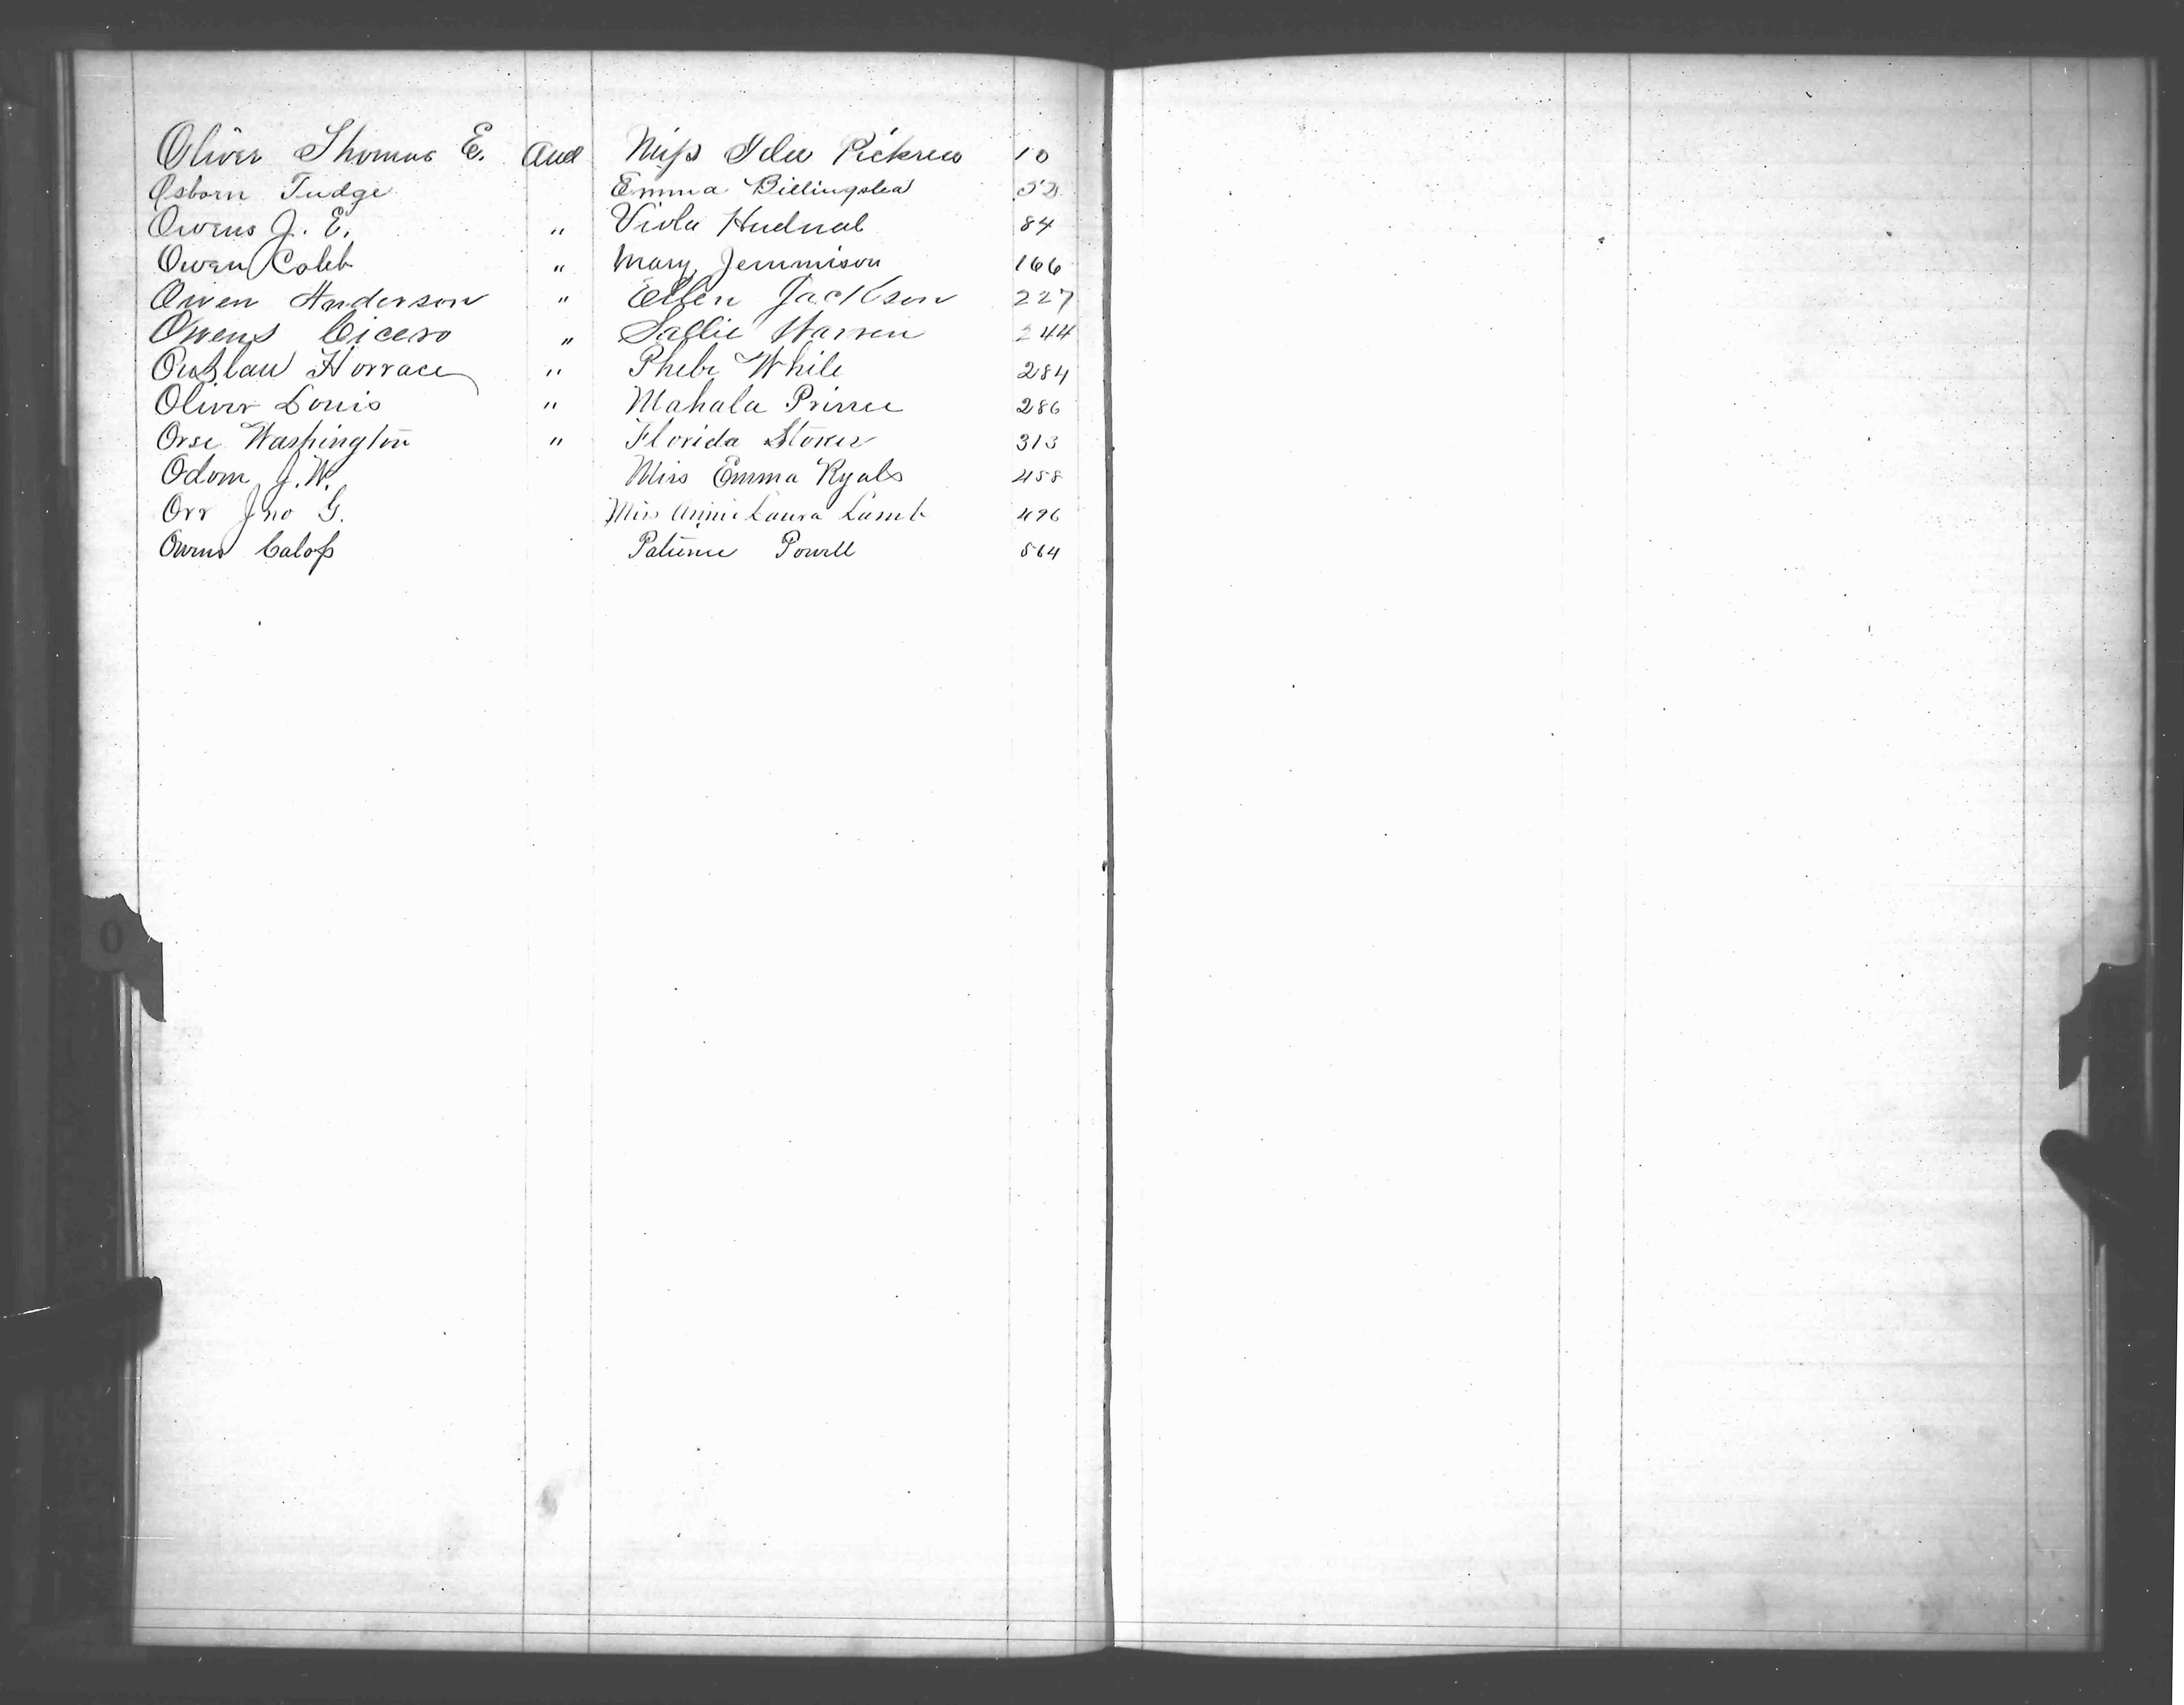 Oliver Thomas E. and Miss Ida Pickren 10
Osborn Judge Emma Billingslea 52
Owens J. E. " Viola Hudnal 84
Owen Caleb " Mary Jemmison 166
Owen Anderson " Ellen Jackson 227
Owens Cicero " Sallie Warren 244
Outlaw Horrace " Phebe White 284
Oliver Louis " Mahala Prince 286
Orse Washington " Florida Stover 313
Odom J. W. Miss Emma Ryals 458
Orr Jno G. Miss Annie Laura Lamb 496
Owens Powell 564
O